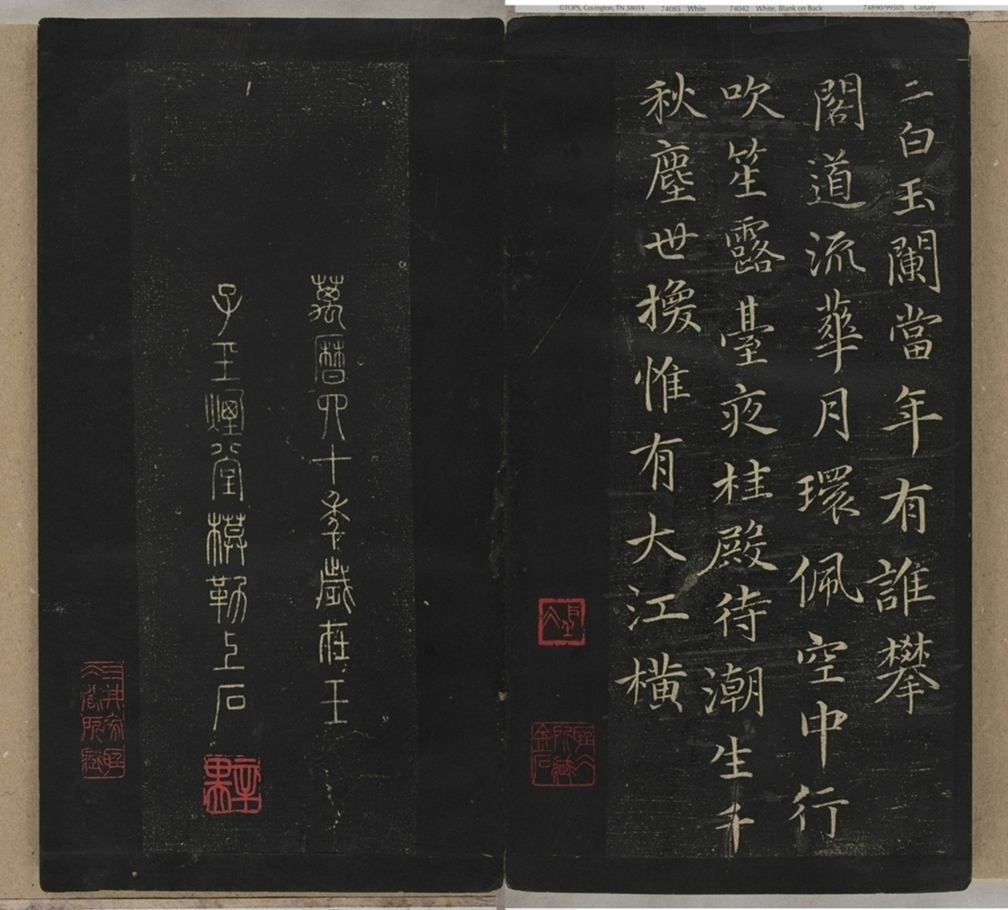 ©TOPS, Covington, TN 38019 74085 White 74042 White, Blank on Back 74890/99505 Canary
二白玉闌當年有誰攀
閣道流華月環佩空中行
吹笙露臺夜桂殿待潮生千
秋塵世換惟有大江橫
萬曆四十季歲在壬
子玉煙堂模勒上石